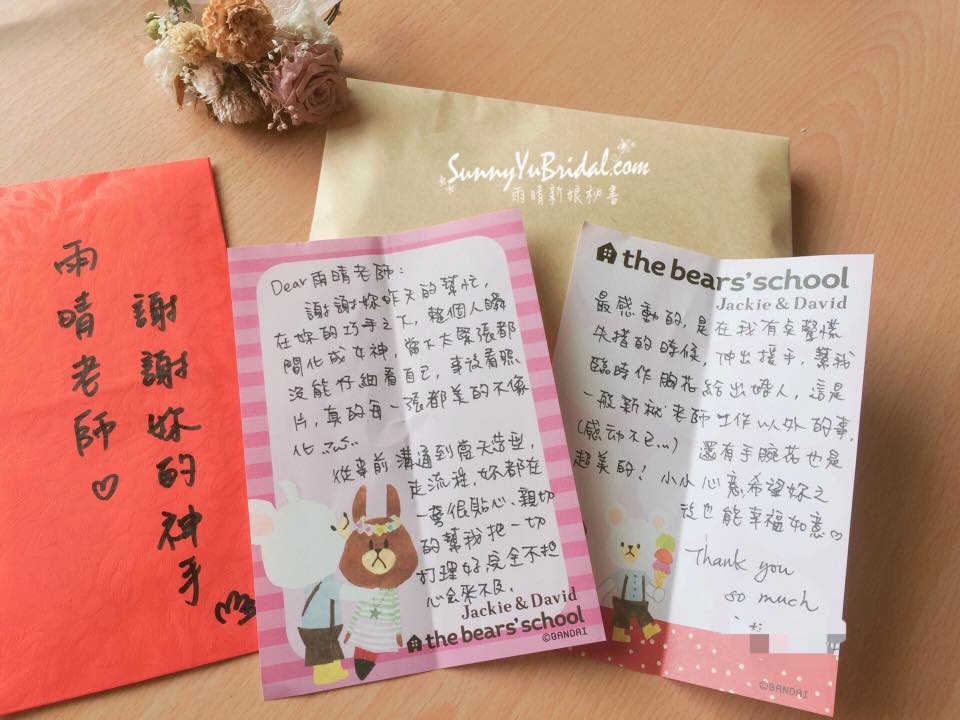 SunnyYuBridal.com
雨晴新娘秘書
雨晴老師♡
謝謝妳的神手
Dear 雨晴老師：
謝謝妳昨天的幫忙，
在妳的巧手之下，整個人瞬
間化成女神，當下太緊張都
沒能仔細看自己，事後看照
片，真的每一張都美的不像
化
從事前溝通到當天造型，
走流程，妳都在
一旁很貼心、親切
的幫我把一切
打理好，完全不担
心会來不及，
Jackie & David
the bears' school
©BANDAI
the bears' school
Jackie & David
最感動的，是在我有桌驚慌
失措的時候 伸出援手，幫我
臨時作胸花給出婚人，這是
一般新秘老師工作以外的事，
(感动不已…) 還有手腕花也是
超美的！小小心意，希望妳之
後也能幸福如意♡
Thank you
so much
©BANDAI